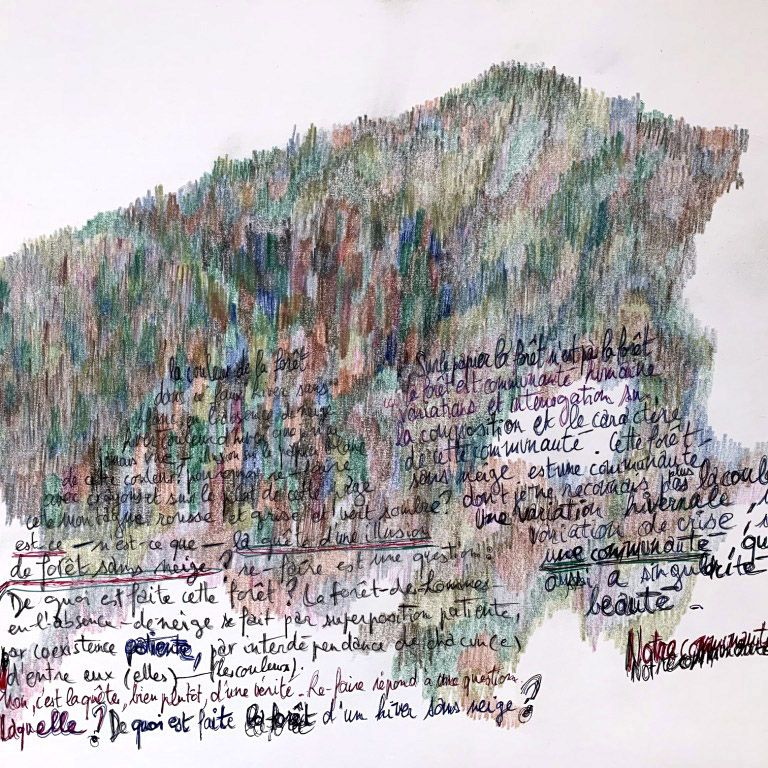 la couleur de la forêt
dans ce faux hiver sans
blanc en l'absence de neige
de cette couleur? pourquoi ne
avec crayons et sur le
cette montagne rousse et grise et vert sombre?
est-ce – n'est-ce que – la quête d'une illusion
de forêt sans neige? re-faire est une question:
De quoi est faite cette forêt? La forêt-de-hommes
en-l'absence-de neige se fait par superposition patiente,
par coexistence patiente, par interdépendance de chacun(e)
d'entre eux (elles) – (les couleurs).
Non, c'est la quête, bien plutôt, d'une vérité. Re-faire répond à une question.
Laquelle? De quoi est faite la forêt d'un hiver sans neige?
Sur le papier la forêt n'est pas la forêt
la forêt est communauté humaine
variations et interrogation sur
la composition et le caractère
de cette communauté. Cette forêt
sans neige est une communauté
dont je ne reconnais plus la coule
une variation hivernale,
variation de crise,
une communauté, qu
aussi a singulière
beauté
Notre communauté